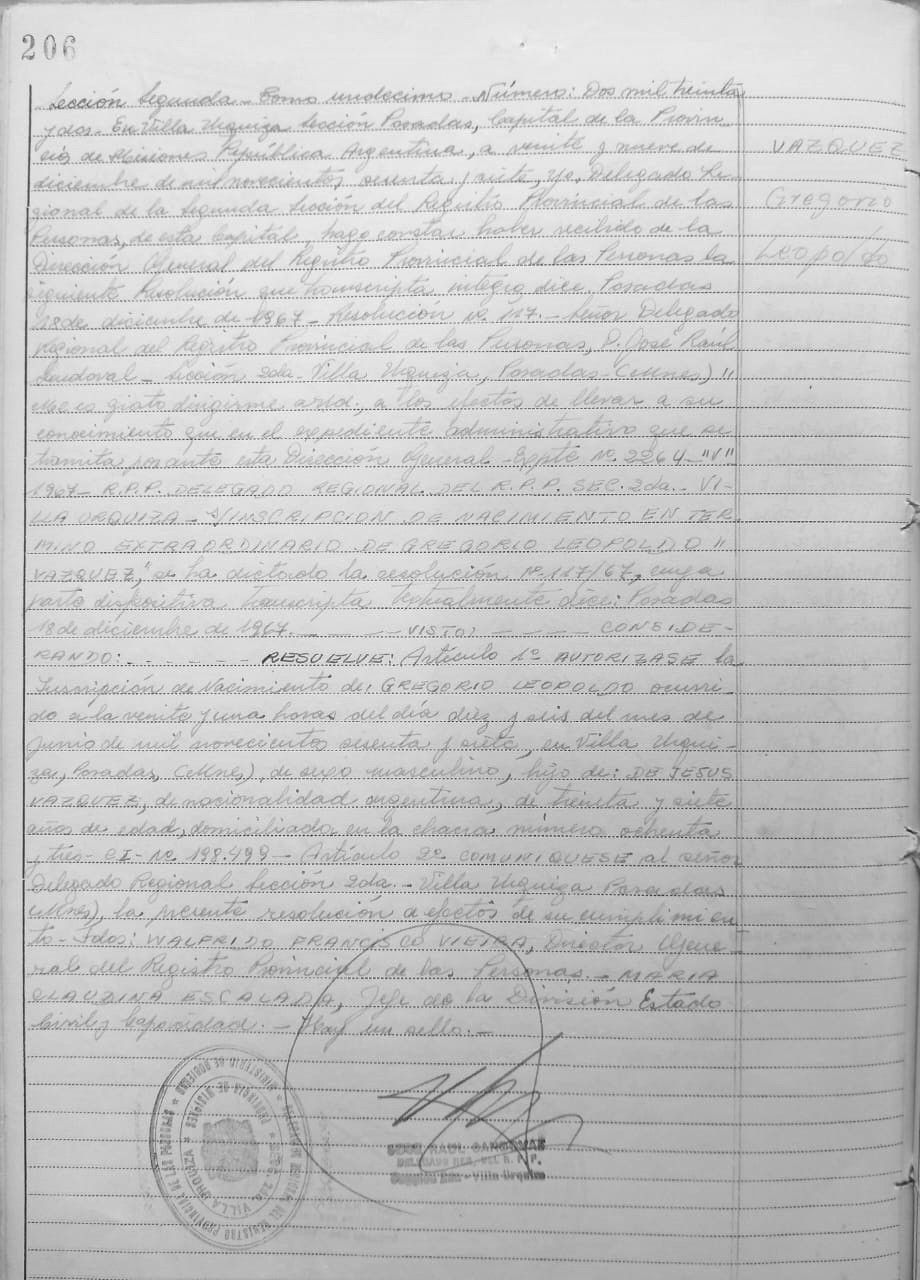 206
Sección Segunda - Tomo undecimo - Número: Dos mil treinta
y dos - En Villa Urquiza Sección Posadas, Capital de la Provin-
cia de Misiones República Argentina, a veinte y nueve de
diciembre de mil novecientos sesenta y siete, yo, Delegado Re-
gional de la Segunda Sección del Registro Provincial de las
Personas, de esta Capital, hago constar haber recibido de la
Dirección General del Registro Provincial de las Personas la
siguiente Resolución que transcripta íntegra dice: Posadas
18 de diciembre de 1967 - Resolución Nº 117. - Señor Delegado
Regional del Registro Provincial de las Personas, D. José Raúl
Sandoval - Sección 2da - Villa Urquiza, Posadas - (Mnes) "
Me es grato dirigirme a Ud., a los efectos de llevar a su
conocimiento que en el expediente administrativo que se
tramita por ante esta Dirección General - Expte Nº 2264 - "V"
1967 - R.P.P. DELEGADO REGIONAL DEL R.P.P. SEC. 2da. - VI-
LLA ORQUIZA - S/INSCRIPCION DE NACIMIENTO EN TER-
MINO EXTRAORDINARIO DE GREGORIO LEOPOLDO "
VAZQUEZ", se ha dictado la resolución Nº 117/67, cuya
parte dispositiva transcripta textualmente dice: Posadas
18 de diciembre de 1967. - - - - VISTO: - - - - CONSIDE-
RANDO: - - - - - - RESUELVE: Artículo 1º AUTORIZASE la
Inscripción de Nacimiento de: GREGORIO LEOPOLDO ocurri-
do a la veinte y una horas del día diez y seis del mes de
Junio de mil novecientos sesenta y siete, en Villa Urqui-
za, Posadas, (Mnes), de sexo masculino, hijo de: DE JESUS
VAZQUEZ, de nacionalidad argentina, de treinta y siete
años de edad, domiciliado en la chacra número ochenta
y tres - CI - Nº 198.499 - Artículo 2º COMUNIQUESE al señor
Delegado Regional Sección 2da. - Villa Urquiza Posadas
(Mnes), la presente resolución a efectos de su cumplimien
to - Fdos: WALFRIDO FRANCISCO VIEIRA, Director Gene-
ral del Registro Provincial de las Personas - MARIA
CLAUDINA ESCALADA, Jefe de la División Estado
Civil y Capacidad. - Hay un sello. -
VAZQUEZ
Gregorio
Leopoldo
JOSE RAUL SANDOVAL
DELEGADO REG. DEL R. P. P.
Sección 2da - Villa Urquiza
MINISTERIO DE GOBIERNO
PROVINCIA DE MISIONES
REGISTRO PROVINCIAL DE LAS PERSONAS
VILLA URQUIZA